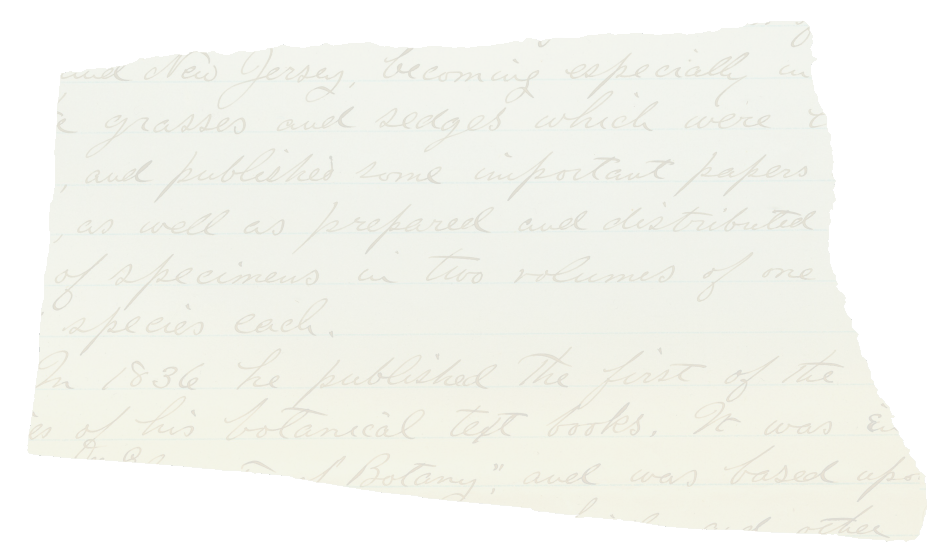 and New Jersey, becoming especially in
grasses and sedges which were
, and published some important papers
, as well as prepared and distributed
of specimens in two volumes of one
species each.
In 1836 he published the first of the
of his botanical text books. It was
of Botany," and was based upo
and other